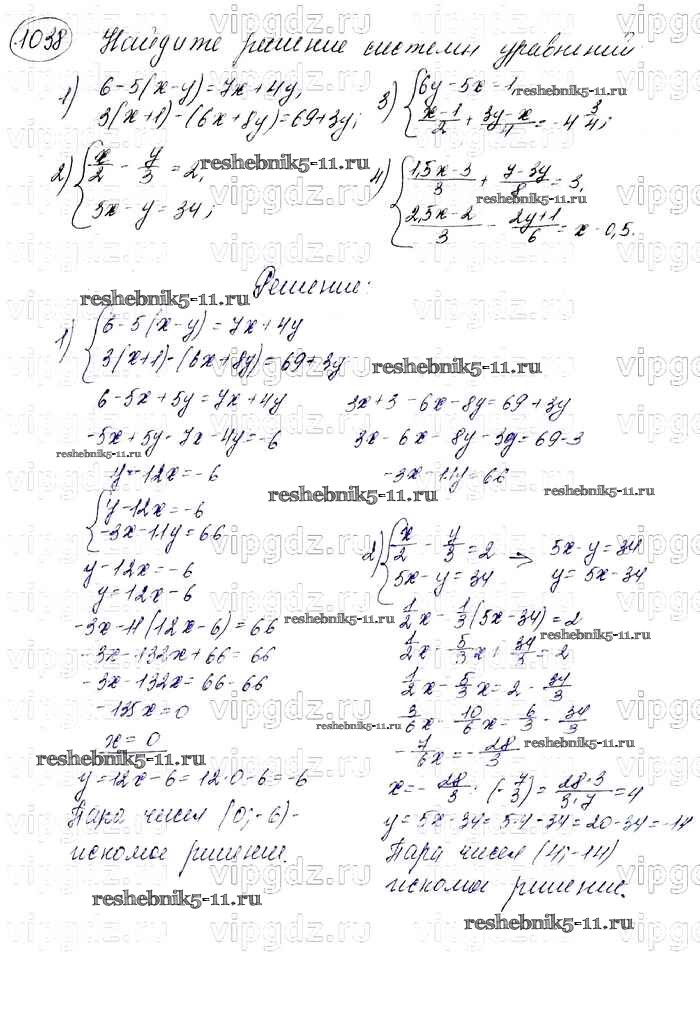 1038 Найдите решение системы уравнений
1) 6-5(x-y)=7x+4y,
3(x+1)-(6x+8y)=69+3y;
2) { x/2 - y/3 = 2,
5x-y=34;
3) { 6y-5x=1,
(x-1)/2 + (3y-x)/4 = -4 3/4;
4) { (1,5x-3)/3 + (7-3y)/8 = 3,
(2,5x-2)/3 - (2y+1)/6 = x-0,5.
Решение:
1) { 6-5(x-y)=7x+4y
3(x+1)-(6x+8y)=69+3y
6-5x+5y=7x+4y
3x+3-6x-8y=69+3y
-5x+5y-7x-4y=-6
3x-6x-8y-3y=69-3
y-12x=-6
-3x-11y=66
{ y-12x=-6
-3x-11y=66
y-12x=-6
y=12x-6
-3x-11(12x-6)=66
-3x-132x+66=66
-3x-132x=66-66
-135x=0
x=0
y=12x-6=12·0-6=-6
Пара чисел (0;-6)-
искомое решение.
2) { x/2 - y/3 = 2 → 5x-y=34
5x-y=34 y=5x-34
1/2x - 1/3(5x-34)=2
1/2x - 5/3x + 34/3 = 2
1/2x - 5/3x = 2 - 34/3
3/6x - 10/6x = 6/3 - 34/3
-7/6x = -28/3
x = -28/3 · (-7/3) = 28·3/3·7 = 4
y=5x-34=5·4-34=20-34=-14
Пара чисел (4;-14)
искомое решение.
reshebnik5-11.ru
vipgdz.ru